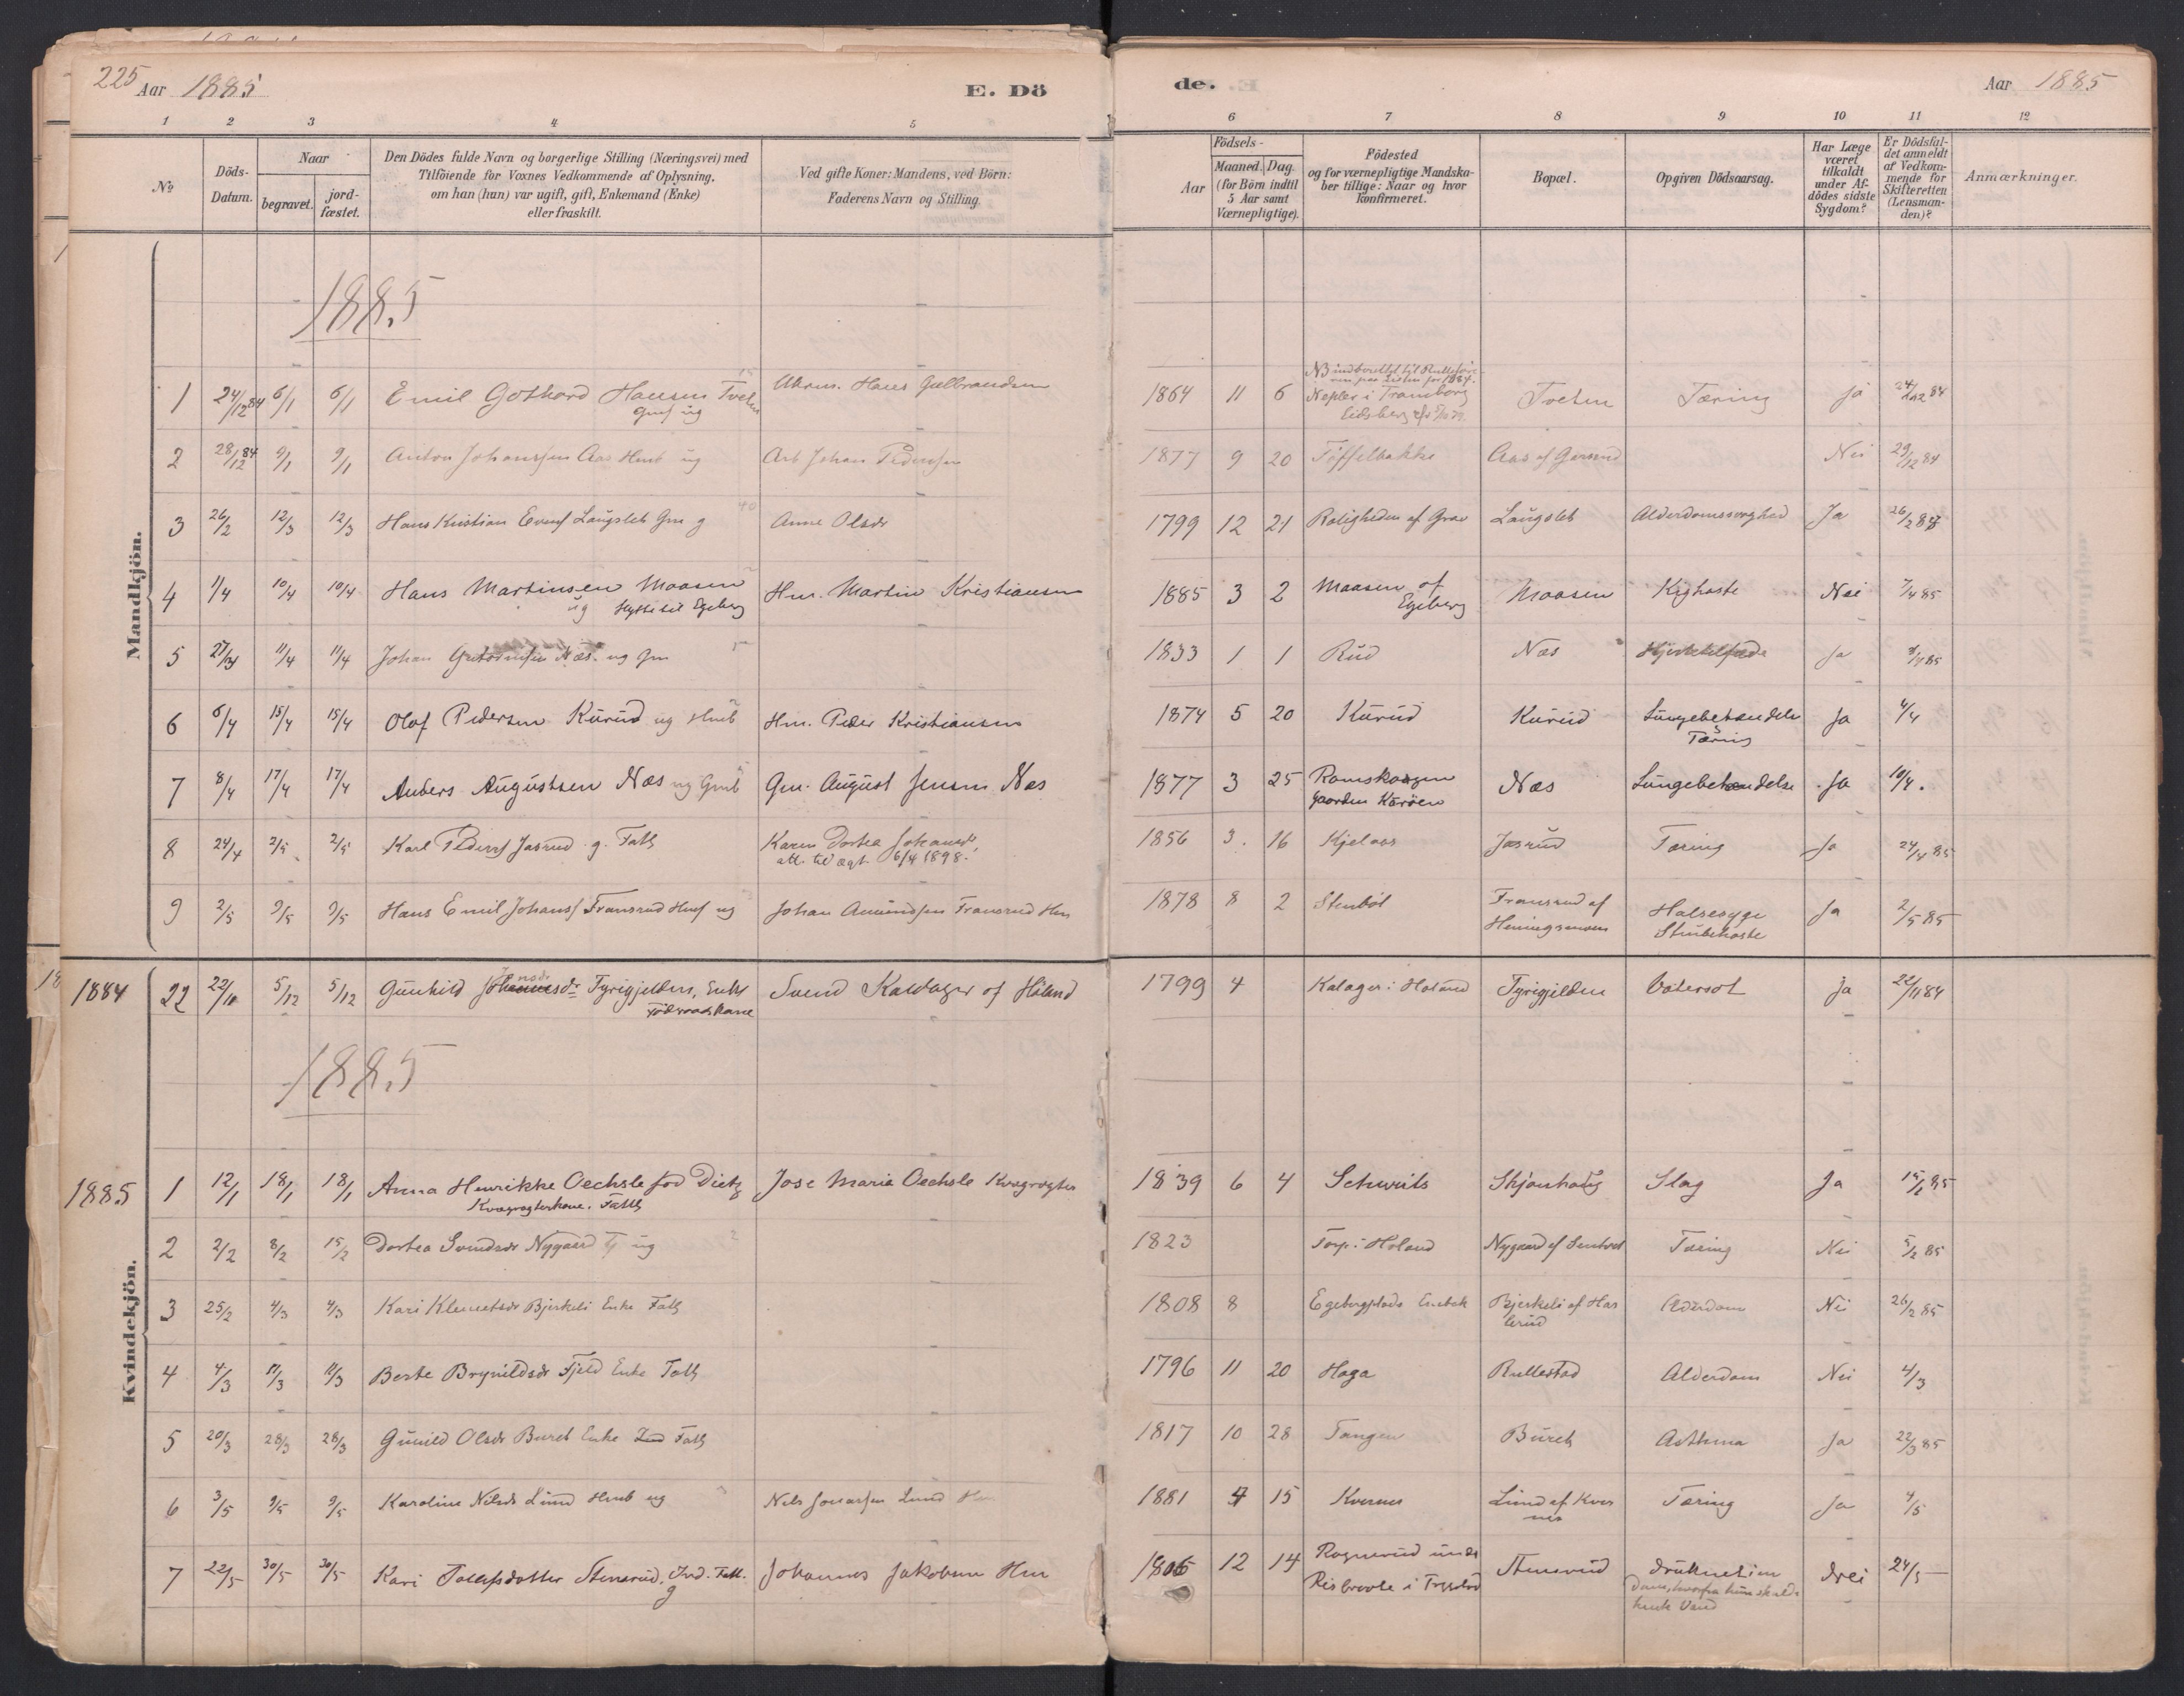 225 Aar 1885 E. Dö
de. Aar 1885
1 2 3 4 5
6 7 8 9 10 11 12
No
Döds-Datum.
Naar
begravet.
jord-fæstet.
Den Dödes fulde Navn og borgerlige Stilling (Næringsvei) med
Tilföiende for Voxnes Vedkommende af Oplysning,
om han (hun) var ugift, gift, Enkemand (Enke)
eller fraskilt.
Ved gifte Koner: Mandens, ved Börn:
Faderens Navn og Stilling.
Födsels-
Aar
Maaned. Dag.
(for Börn indtil
5 Aar samt
Værnepligtige).
Födested
og for værnepligtige Mandska-
ber tillige: Naar og hvor
konfirmeret.
Bopæl.
Opgiven Dödsaarsag.
Har Læge
været
tilkaldt
under Af-
dödes sidste
Sygdom?
Er Dödsfal-
det anmeldt
af Vedkom-
mende for
Skifteretten
(Lensman-
den)?
Anmærkninger.
Mandkjön.
1885
1 24/12 84 6/1 6/1 Emil Gothard Hansen Tveten 1864 11 6 Tveten Tæring ja 24/12 84
Gmf ug
2 28/12 84 9/1 9/1 Anton Johanssen Aas Hmb ug Arb Johan Pedersen 1877 9 20 Töffelbakke Aas af Nei 29/12 84
3 26/2 12/3 12/3 Hans Kristian Evensf Laugslet Gm g Anne Olsdr 1799 12 21 Roligheden af Grav Laugslet Alderdomssvaghed Ja 26/2 84
4 1/4 10/4 10/4 Hans Martinsen Maasen Hm. Martin Kristiansen 1885 3 2 Maasen af Egeberg Maasen Kighoste Nei 7/4 85
ug Egeberg
5 11/4 11/4 Johan Næs ug Gm 1833 1 1 Rud Næs Ja
6 6/4 15/4 15/4 Olaf Pedersen Kurud ug Hmb Hm. Peder Kristiansen 1874 5 20 Kurud Kurud Lungebetændelse Ja
Tæring
7 8/4 17/4 17/4 Anders Augustsen Næs ug Gmb Gm. August Jensen Næs 1877 3 25 Romskogen Næs Lungebetændelse Ja 10/4.
Gaarden Kæröen
8 24/4 2/5 2/5 Karl Pedersf Jasrud g. Fatt Karen Dortea Johansd, 1856 3. 16 Kjelaas Jasrud Tæring Ja 24/4 85
att. til ægt. 6/4 1898.
9 2/5 9/5 9/5 Hans Emil Johansf Fransrud Hmf ug Johan Amundsen Fransrud Hm 1878 8 2 Stenböl Fransrud af Halsesyge Ja 2/5 85
Strubehoste
1884 22 5/12 5/12 Gunhild Tyrigjelden, Enke Svend Kallager af Höland 1799 4 Kalager i Höland Tyrigjelden Vatersot ja 22/11 84
1885
Kvindekjön.
1885 1 12/1 18/1 18/1 Anna Henrikke Oechsle fød Dietz Jose Maria Oechsle Kvægrögter 1839 6 4 Schweits Skjönhaug Slag Ja
Kvægrögterkone. Fattig
2 2/2 8/2 15/2 Dortea Svendsdr Nygaard ug 1823 Torp i Höland Nygaard af Tæring Nei 5/2 85
3 25/2 4/3 4/3 Kari Klemetsdr Bjerkeli Enke Fattg 1808 8 Egebergplads Enebak Bjerkeli af Has Alderdom Nei 26/2 85
lerud
4 4/3 11/3 11/3 Berte Brynildsdr Fjeld Enke Fattg 1796 11 20 Haga Rullestad Alderdom Nei 4/3
5 20/3 28/3 28/3 Gunild Olsdr Buret Enke Fattg 1817 10 28 Tangen Buret Asthma Ja 22/3 85
6 3/5 9/5 9/5 Karoline Nilsdr Lund Hmb ug Nils Jonassen Lund Hm 1881 4 15 Kvernes Lund af Kver Tæring Ja 4/5
nes
7 22/5 30/5 30/5 Kari Tollefsdatter Stensrud, Ind. Fatt. Johannes Jakobsen Hm 1806 12 14 Rognerud under Stensrud druknet i en Nei 24/5
g Risbroete i Trygstad Dam, hvorfra hun skulde
hente Vand